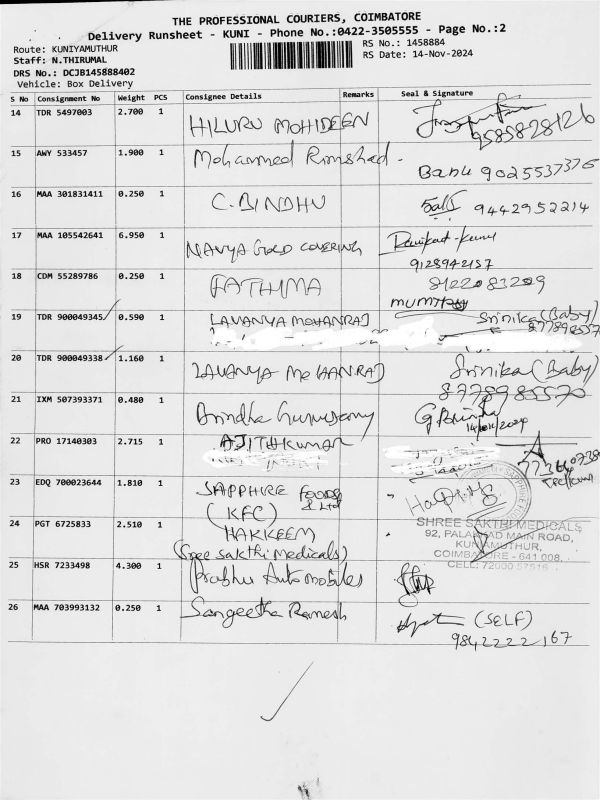 THE PROFESSIONAL COURIERS, COIMBATORE
Delivery Runsheet - KUNI - Phone No.:0422-3505555 - Page No.:2
Route: KUNIYAMUTHUR
RS No.: 1458884
Staff: N.THIRUMAL
RS Date: 14-Nov-2024
DRS No.: DCJB145888402
Vehicle: Box Delivery
S No Consignment No Weight PCS Consignee Details Remarks Seal & Signature
14 TDR 5497003 2.700 1 HILURU MOHIDEEN
9585828126
15 AWY 533457 1.900 1 Mohammed Rimshad - Babu 9025537376
16 MAA 301831411 0.250 1 C.BINDHU 9442952214
17 MAA 105542641 6.950 1 NAVYA GOLD COVERING
9128942157
18 CDM 55289786 0.250 1 FATHIMA 8122083209
19 TDR 900049345 0.590 1 LAVANYA MOHANRAJ Srinika (Baby)
20 TDR 900049338 1.160 1 LAVANYA MOHANRAJ Srinika (Baby)
8778985570
21 IXM 507393371 0.480 1
22 PRO 17140303 2.715 1 AJITHKumar
23 EDQ 700023644 1.810 1 SAPPHIRE FOODS & Ltd
(KFC)
24 PGT 6725833 2.510 1 HAKKEEM
(Sree sakthi medicals)
SHREE SAKTHI MEDICALS
92, PALAKKAD MAIN ROAD,
KUNIAMUTHUR,
COIMBATORE - 641 008.
CELL: 72000 57616
25 HSR 7233498 4.300 1 Prabhu Automobiles
26 MAA 703993132 0.250 1 Sangeetha Ramesh (SELF)
9842222167